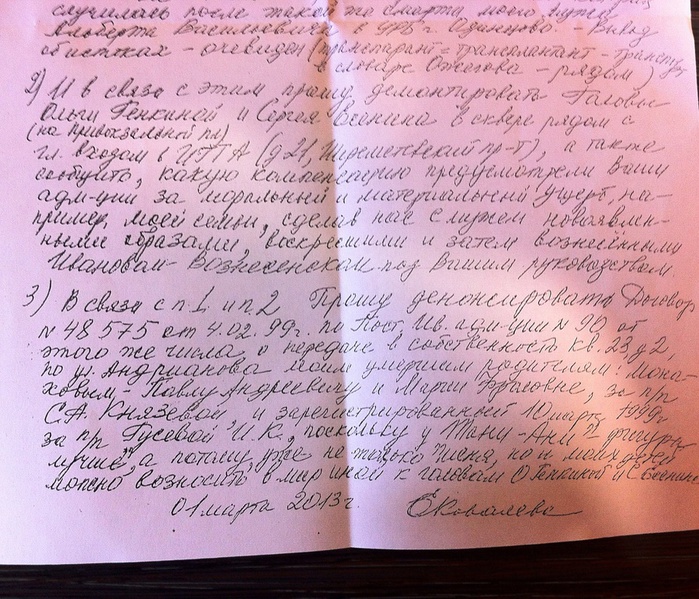 случилась после такой же смерти моего
Альберта Васильевича в УРБ г. Одинцово. - Вывод
об истоках - очевиден (транспарант - трансплантант -
в словаре Ожегова - рядом)
2) И в связи с этим прошу демонтировать Головы
Ольги Генкиной и Сергея Есенина в сквере рядом с
(на привокзальной пл)
гл. входом в ИГТА (д 21, Шереметевский пр-т), а также
сообщить, какую компенсацию предусмотрели Вашу
адм-ции за моральный и материальный ущерб, на-
пример, моей семьи, сделав нас с мужем новоявлен-
ными образами, воскресшими и затем вознесёнными
Ивановом-Вознесенском под Вашим руководством.
3) В связи с п. 1. и п. 2 Прошу денонсировать Договор
N 48575 от 4.02.99г. по Пост. Ив. адм-ции N 90 от
этого же числа о передаче в собственность кв. 23, д 2,
по ул. Андрианова моим умершим родителям: Мона-
ховым - Павлу Андреевичу и Марии Тарасовне, за пр
С.А. Князевой и зарегистрированный 10 марта 1999г
за пр Гусевой И.К., поскольку у "Тану-Ани"
лучше", а потому уже не только меня, но и моих детей
можно возносить в мир иной к головам О Генкиной и С Есенина
01 марта 2013г. ЕКовалева